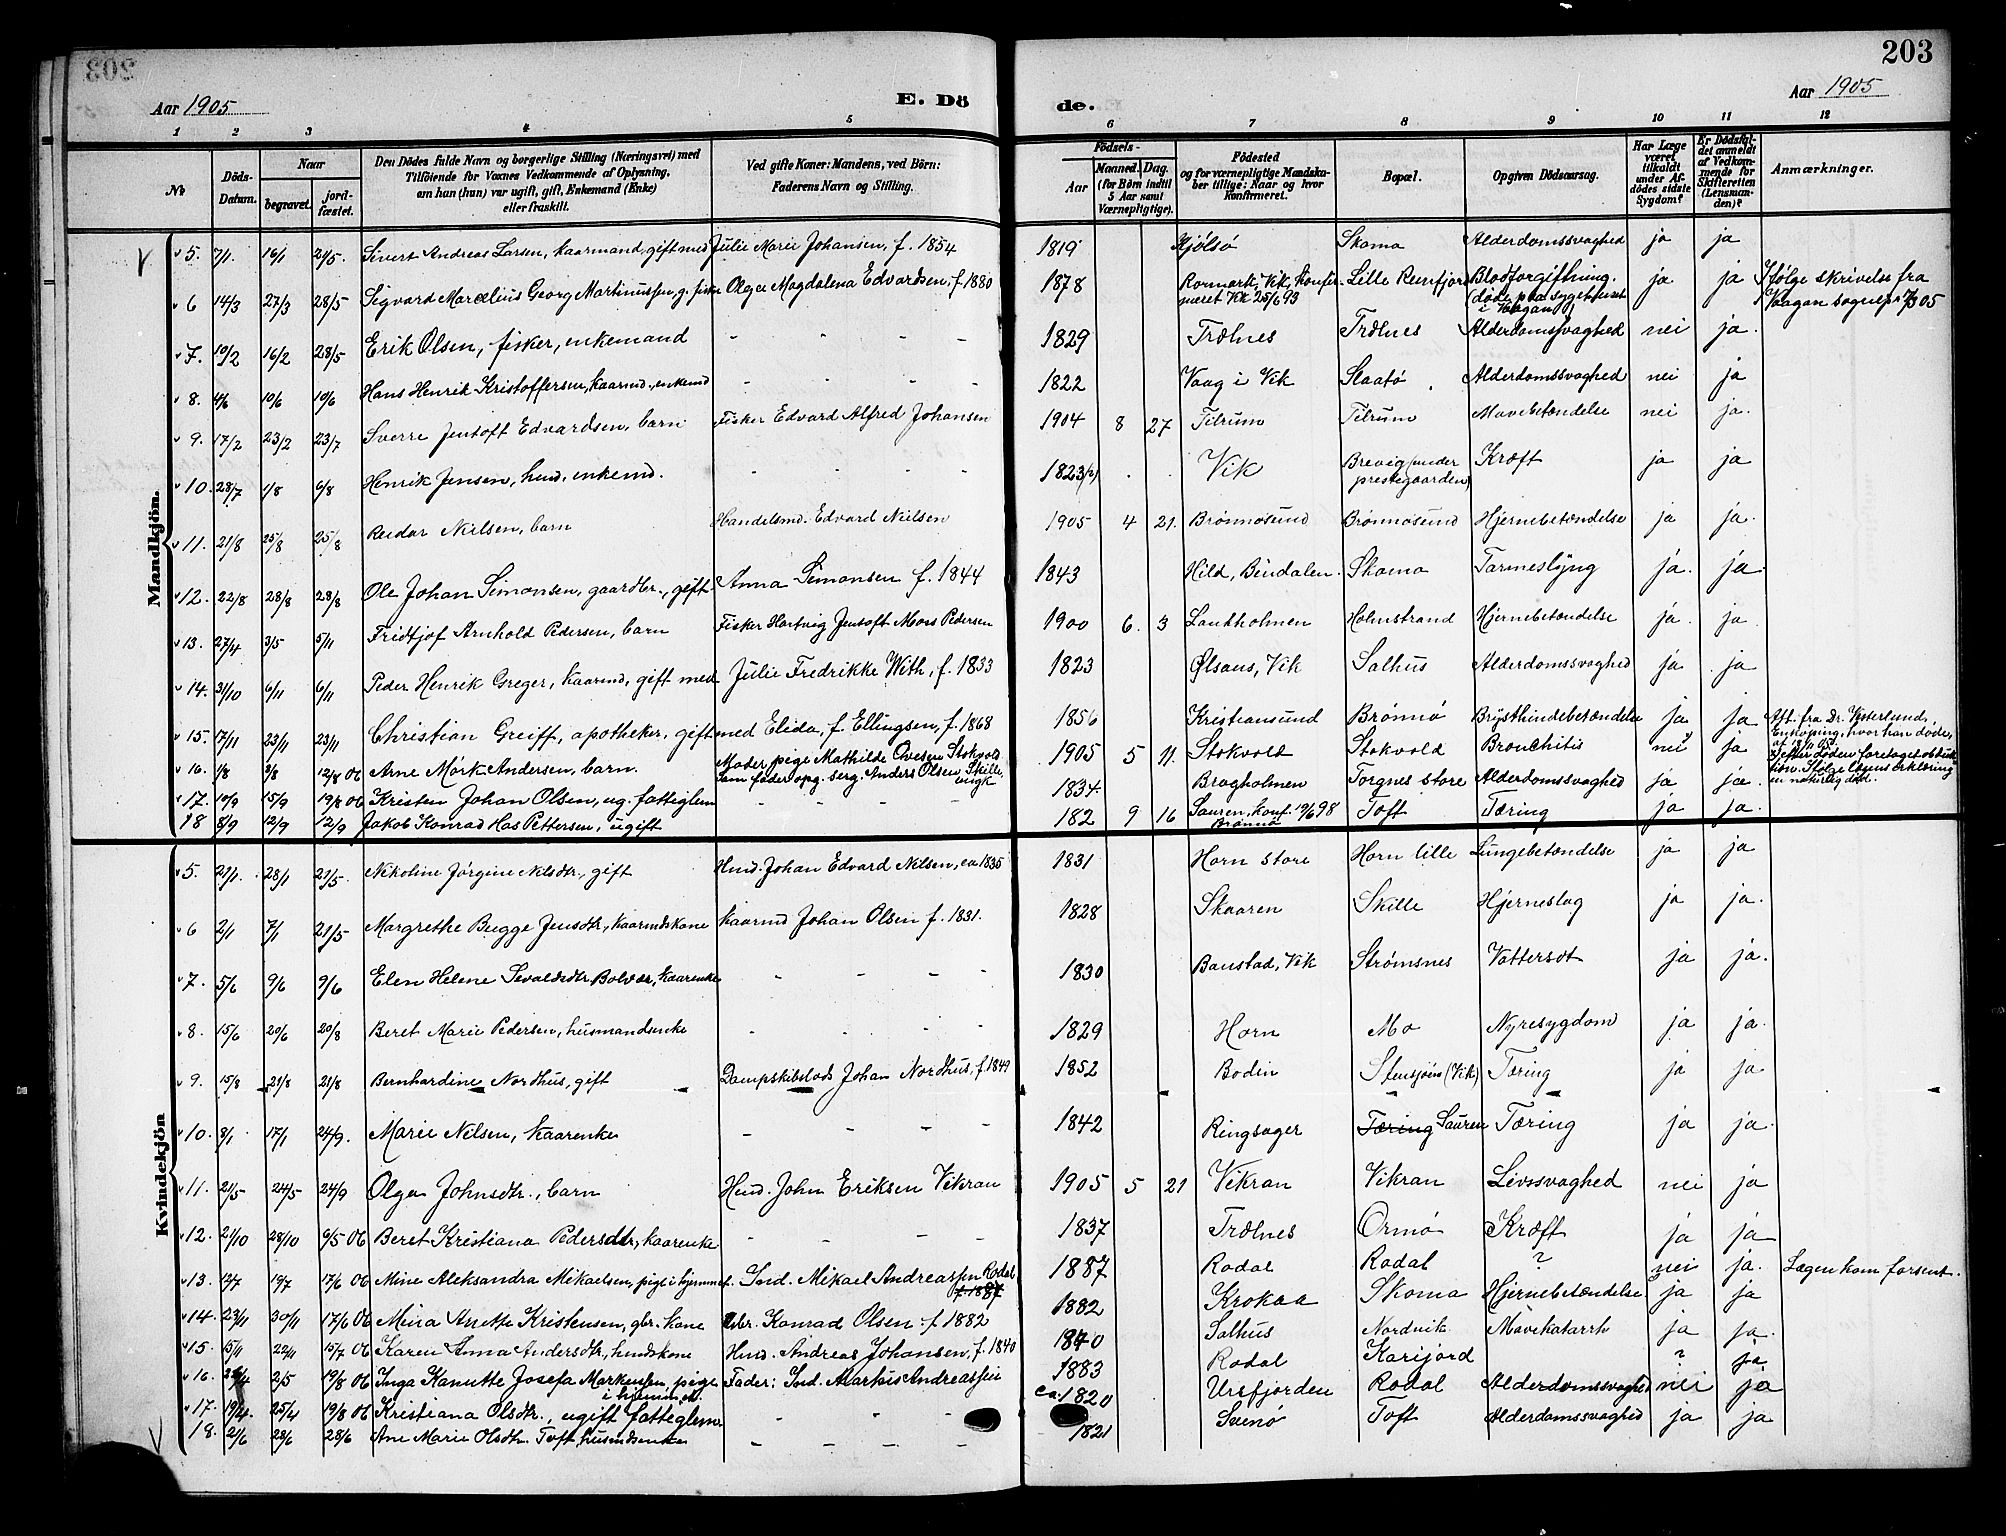 203
Aar 1905 E. Dö de. Aar 1905
1 2 3 4 5 6 7 8 9 10 11 12
No
Döds-Datum.
Naar
begravet.
jord-fæstet.
Den Dödes fulde Navn og borgerlige Stilling (Næringsvei) med
Tilföiende for Voxnes Vedkommende af Oplysning,
om han (hun) var ugift, gift, Enkemand (Enke)
eller fraskilt.
Ved gifte Koner: Mandens, ved Börn:
Faderens Navn og Stilling.
Födsels-
Aar
Maaned. Dag.
(for Börn indtil
5 Aar samt
Værnepligtige).
Födested
og for værnepligtige Mandska-
ber tillige: Naar og hvor
konfirmeret.
Bopæl.
Opgiven Dödsaarsag.
Har Læge
været
tilkaldt
under Af-
dödes sidste
Sygdom?
Er Dödsfal-
det anmeldt
af Vedkom-
mende for
Skifteretten
(Lensman-
den)?
Anmærkninger.
Mandkjön.
5. 7/1 16/1 21/5. Sivert Andreas Larsen, kaarmand, gift med Julie Marie Johansen, f. 1854 1819 Kjølsø Skomo Alderdomssvaghed ja ja
6 14/3 27/3 28/5 Sigvard Marcelius Georg Martinussen, g. fisker Olga Magdalena Edvardsen, f 1880 1878 Ronmark, Vik, Konfir- Lille Reinfjord Blodforgiftning. ja ja Ifølge skrivelse fra
meret Vik 25/6 93 (døde paa sygehuset Vaagan sognepr. 05
i Vaagan)
7. 10/2 16/2 28/5 Erik Olsen, fisker, enkemand - - - - 1829 Trælnes Trælnes Alderdomssvaghed nei ja.
8. 4/6 10/6 10/6 Hans Henrik Kristoffersen, kaarmd., enkemd - - - - 1822 Vaag i Vik Slaatø Alderdomssvaghed nei ja
9. 17/2 23/2 23/7 Sverre Jentoft Edvardsen, barn Fisker Edvard Alfred Johansen 1904 8 27 Tilrum Tilrum Mavebetændelse nei ja.
10. 28/7 1/8 6/8 Henrik Jensen, husd. enkemd. - - - - 1823(?) Vik Brevig (under Kræft ja ja
prestegaarden)
11. 21/8 25/8 25/8 Reidar Nielsen, barn Handelsmd. Edvard Nielsen 1905 4 21. Brønnøsund Brønnøsund Hjernebetændelse ja ja.
12. 22/8 28/8 28/8 Ole Johan Simonsen, gaardbr., gift Anna Simonsen f. 1844 1843 Hild, Bindalen. Skomo Tarmeslyng ja. ja.
13. 27/4 3/5 5/11 Fridtjof Arnhold Pedersen, barn Fisker Hartvig Jentoft Moos Pedersen 1900 6. 3 Sandholmen Holmstrand Hjernebetændelse ja. ja.
14. 31/10 6/11 6/11 Peder Henrik Greger, kaarmd, gift med Julie Fredrikke With, f. 1833 1823 Ølsaus, Vik Salhus Alderdomssvaghed ja ja
15. 17/11 23/11 23/11 Christian Greiff, apotheker, gift med Elida, f. Ellingsen, f. 1868 1856 Kristiansund Brønnø Brysthindebetændelse ja ja Aft. fra Dr. Westerlund,
Enköping, hvor han døde,
16. 1/8 8/8 12/8 06 Arne Mørk Andersen, barn. Moder, pige Mathilde Ovesen Stokvold 1905 5 11. Stokvold Stokvold Bronchitis nei ja Efter døden foretaget obduk-
som fader opg. serg. Anders Olsen Skille, tion. Ifølge lægens erklæring
ungk en naturlig død.
17. 10/9 15/9 19/8 06 Kristen Johan Olsen, ug. fattiglem - - - - 1834 Bragholmen Torgnes store Alderdomssvaghed ja ja.
18 8/9 12/9 12/9 Jakob Konrad Has Pettersen, ugift 182 9 16 Sauren, konf. 19/6 98 Toft Tæring ja ja.
Brønnø
Kvindekjön
5. 21/1. 28/1 21/5. Nikoline Jørgine Nilsdtr., gift Husd. Johan Edvard Nilsen, ca 1835 1831 Horn store Horn lille Lungebetændelse ja ja
6 2/1 7/1 21/5 Margrethe Bugge Jensdtr., kaarmdskone kaarmd Johan Olsen f. 1831. 1828 Skaaren Skille Hjerneslag ja ja.
7. 5/6 9/6 9/6 Elen Helene Sevaldsdtr Bolvær, kaarenke - - - - 1830 Banstad, Vik Strømsnes Vattersot ja ja.
8. 15/6 20/6 20/8 Beret Marie Pedersen, husmandsenke - - - - 1829 Horn Mo Nyresygdom ja ja.
9. 15/8 21/8 21/8 Bernhardine Nordhus, gift Dampskibslods Johan Nordhus, f 1849 1852 Bodin Stensjøen (Vik) Tæring ja ja
10. 8/1 17/1 24/9. Marie Nilsen, kaarenke - - - - 1842 Ringsager Tæring Sauren Tæring ja ja.
11. 21/5 24/5 24/9 Olga Johnsdtr., barn Husd. John Eriksen Vikran 1905 5 21 Vikran Vikran Livssvaghed nei ja
12. 21/10 28/10 6/5 06 Beret Kristiana Pedersdtr, kaarenke - - - - 1837 Trælnes Ormø Kræft ja ja
13. 12/7 19/7 17/6 06 Mine Aleksandra Mikaelsen, pige i hjemmet. Ind. Mikael Andreassen Rodal 1887 Rodal Rodal ? nei ja. Lægen kom forsent.
f 1887
14. 23/11 30/11 17/6 06 Mina Anette Kristensen, gbr. kone Gbr. Konrad Olsen f. 1882 1882 Krokaa Skomo Hjernebetændelse ja ja
15. 15/11 22/11 15/7 06 Karen Anna Andersdtr., husdskone Husd. Andreas Johansen, f. 1840 1840 Salhus Nordvik Mavekatarrh ja ja.
16. 28/4 2/5 19/8 06 Inga Kanutte Josefa Markussen, pige Fader: Ind. Markus Andreassen 1883 Rodal Karijord ? ja
i hjemmet
17. 19/4. 25/4 19/8 06 Kristiana Olsdtr., ugift fattiglem - - - ca. 1820 Ursfjorden Rodal Alderdomssvaghed nei ja
18. 2/6 28/6 28/6 Ane Marie Olsdtr. Toft, husmdsenke - - - - 1821 Svenø Toft Alderdomssvaghed ja ja